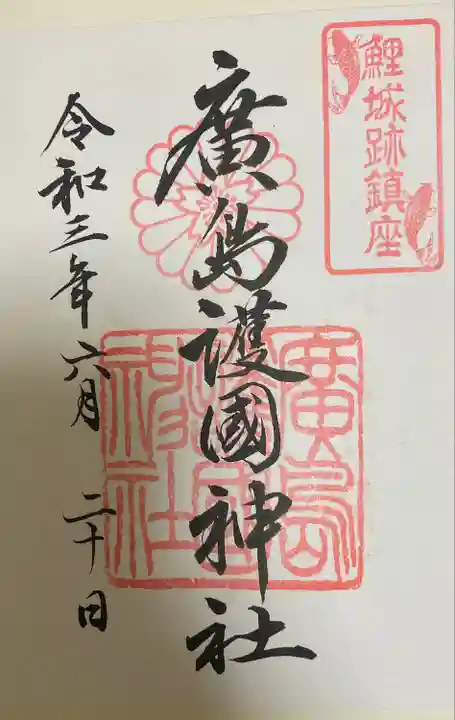 鯉城跡鎮座
廣島護國神社
廣島護國神社
令和三年六月二十日